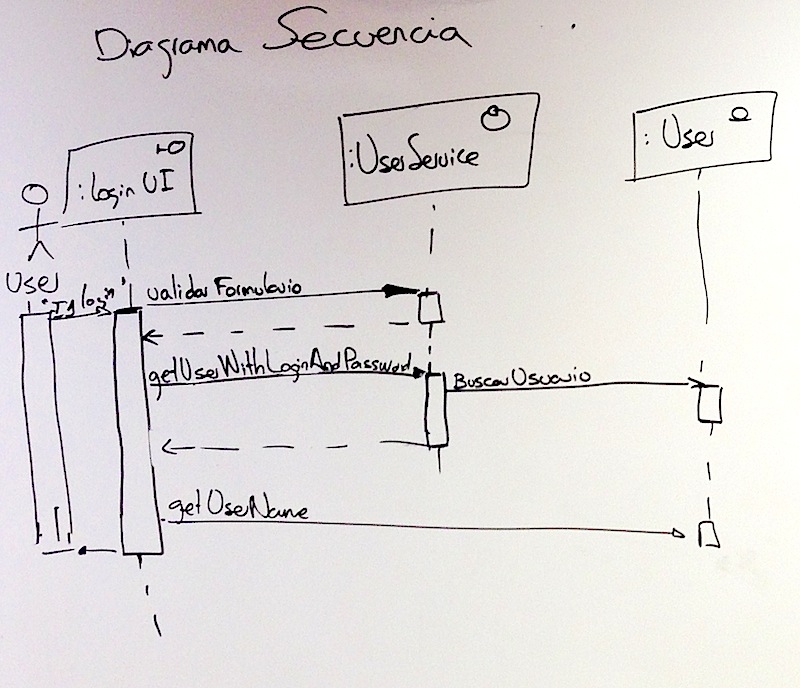 Diagrama Secuencia
: login UI
:UserService
: User
User
login
validar Formulario
getUserWithLoginAndPassword
Buscar Usuario
getUserName